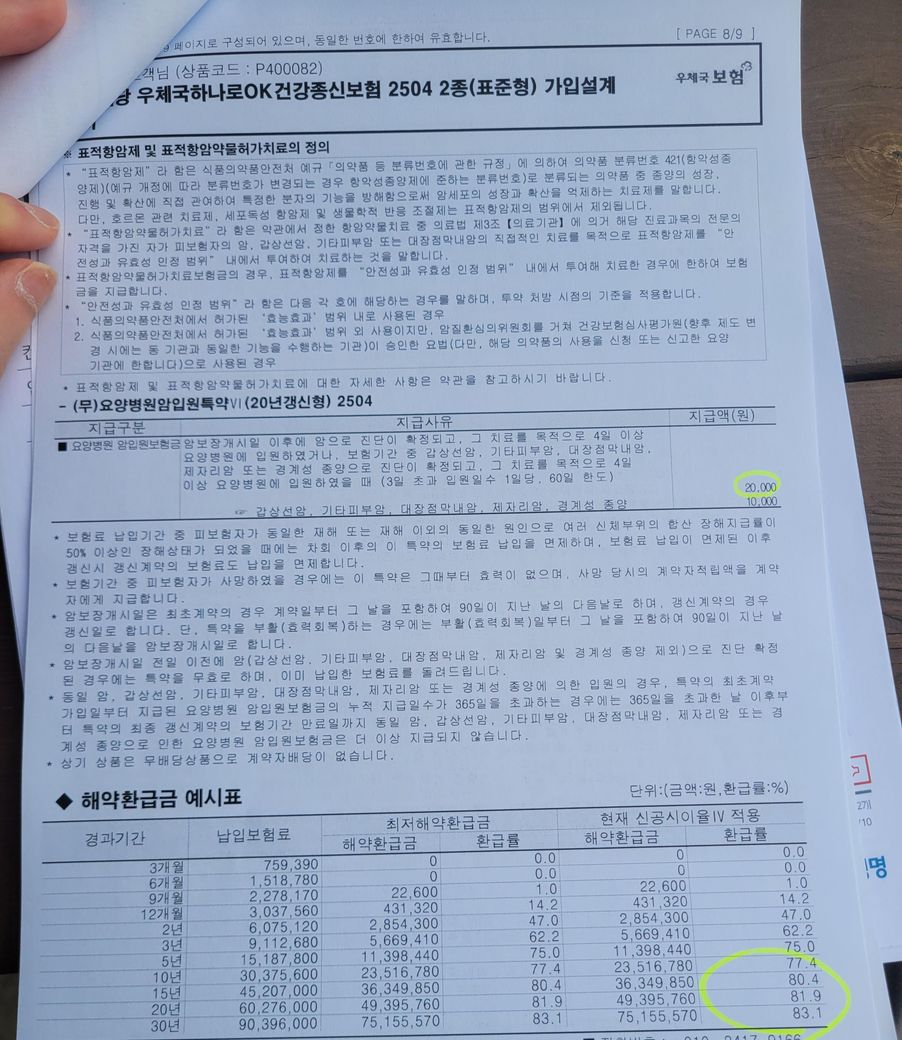 페이지로 구성되어 있으며, 동일한 번호에 한하여 유효합니다.
[ PAGE 8/9 ]
고객님 (상품코드 : P400082)
우체국하나로OK건강종신보험 2504 2종(표준형) 가입설계
우체국보험
※ 표적항암제 및 표적항암약물허가치료의 정의
* "표적항암제"라 함은 식품의약품안전처 예규「의약품 등 분류번호에 관한 규정」에 의하여 의약품 분류번호 421(항악성종
양제)(예규 개정에 따라 분류번호가 변경되는 경우 항악성종양제에 준하는 분류번호)로 분류되는 의약품 중 종양의 성장,
진행 및 확산에 직접 관여하여 특정한 분자의 기능을 방해함으로써 암세포의 성장과 확산을 억제하는 치료제를 말합니다.
다만, 호르몬 관련 치료제, 세포독성 항암제 및 생물학적 반응 조절제는 표적항암제의 범위에서 제외됩니다.
* "표적항암약물허가치료"라 함은 약관에서 정한 항암약물치료 중 의료법 제3조【의료기관】에 의거 해당 진료과목의 전문의
자격을 가진 자가 피보험자의 암, 갑상선암, 기타피부암 또는 대장점막내암의 직접적인 치료를 목적으로 표적항암제를 "안
전성과 유효성 인정 범위" 내에서 투여하여 치료하는 것을 말합니다.
* 표적항암약물허가치료보험금의 경우, 표적항암제를 "안전성과 유효성 인정 범위" 내에서 투여해 치료한 경우에 한하여 보험
금을 지급합니다.
* "안전성과 유효성 인정 범위"라 함은 다음 각 호에 해당하는 경우를 말하며, 투약 처방 시점의 기준을 적용합니다.
1. 식품의약품안전처에서 허가된 '효능효과' 범위 내로 사용된 경우
2. 식품의약품안전처에서 허가된 '효능효과' 범위 외 사용이지만, 암질환심의위원회를 거쳐 건강보험심사평가원(향후 제도 변
경 시에는 동 기관과 동일한 기능을 수행하는 기관)이 승인한 요법(다만, 해당 의약품의 사용을 신청 또는 신고한 요양
기관에 한합니다)으로 사용된 경우
* 표적항암제 및 표적항암약물허가치료에 대한 자세한 사항은 약관을 참고하시기 바랍니다.
- (무)요양병원암입원특약Ⅵ(20년갱신형) 2504
지급구분 지급사유 지급액(원)
■ 요양병원 암입원보험금 암보장개시일 이후에 암으로 진단이 확정되고, 그 치료를 목적으로 4일 이상
요양병원에 입원하였거나, 보험기간 중 갑상선암, 기타피부암, 대장점막내암,
제자리암 또는 경계성 종양으로 진단이 확정되고, 그 치료를 목적으로 4일
이상 요양병원에 입원하였을 때 (3일 초과 입원일수 1일당, 60일 한도) 20,000
☞ 갑상선암, 기타피부암, 대장점막내암, 제자리암, 경계성 종양 10,000
* 보험료 납입기간 중 피보험자가 동일한 재해 또는 재해 이외의 동일한 원인으로 여러 신체부위의 합산 장해지급률이
50% 이상인 장해상태가 되었을 때에는 차회 이후의 이 특약의 보험료 납입을 면제하며, 보험료 납입이 면제된 이후
갱신시 갱신계약의 보험료도 납입을 면제합니다.
* 보험기간 중 피보험자가 사망하였을 경우에는 이 특약은 그때부터 효력이 없으며, 사망 당시의 계약자적립액을 계약
자에게 지급합니다.
* 암보장개시일은 최초계약의 경우 계약일부터 그 날을 포함하여 90일이 지난 날의 다음날로 하며, 갱신계약의 경우
갱신일로 합니다. 단, 특약을 부활(효력회복)하는 경우에는 부활(효력회복)일부터 그 날을 포함하여 90일이 지난 날
의 다음날을 암보장개시일로 합니다.
* 암보장개시일 전일 이전에 암(갑상선암, 기타피부암, 대장점막내암, 제자리암 및 경계성 종양 제외)으로 진단 확정
된 경우에는 특약을 무효로 하며, 이미 납입한 보험료를 돌려드립니다.
* 동일 암, 갑상선암, 기타피부암, 대장점막내암, 제자리암 또는 경계성 종양에 의한 입원의 경우, 특약의 최초계약
가입일부터 지급된 요양병원 암입원보험금의 누적 지급일수가 365일을 초과하는 경우에는 365일을 초과한 날 이후부
터 특약의 최종 갱신계약의 보험기간 만료일까지 동일 암, 갑상선암, 기타피부암, 대장점막내암, 제자리암 또는 경
계성 종양으로 인한 요양병원 암입원보험금은 더 이상 지급되지 않습니다.
* 상기 상품은 무배당상품으로 계약자배당이 없습니다.
◆ 해약환급금 예시표
단위:(금액:원,환급률:%)
경과기간 납입보험료 최저해약환급금 현재 신공시이율Ⅳ 적용
해약환급금 환급률 해약환급금 환급률
3개월 759,390 0 0.0 0 0.0
6개월 1,518,780 0 0.0 0 0.0
9개월 2,278,170 22,600 1.0 22,600 1.0
12개월 3,037,560 431,320 14.2 431,320 14.2
2년 6,075,120 2,854,300 47.0 2,854,300 47.0
3년 9,112,680 5,669,410 62.2 5,669,410 62.2
5년 15,187,800 11,398,440 75.0 11,398,440 75.0
10년 30,375,600 23,516,780 77.4 23,516,780 77.4
15년 45,207,000 36,349,850 80.4 36,349,850 80.4
20년 60,276,000 49,395,760 81.9 49,395,760 81.9
30년 90,396,000 75,155,570 83.1 75,155,570 83.1